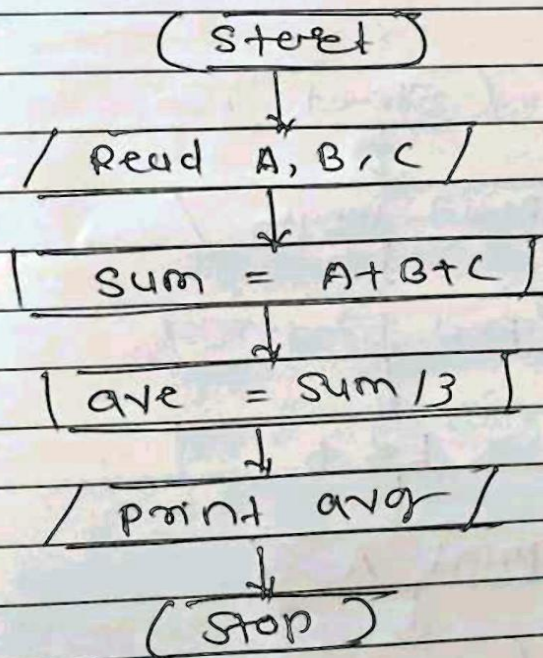 Start
Read A, B, C
Sum = A+B+C
ave = Sum/3
print avg
Stop